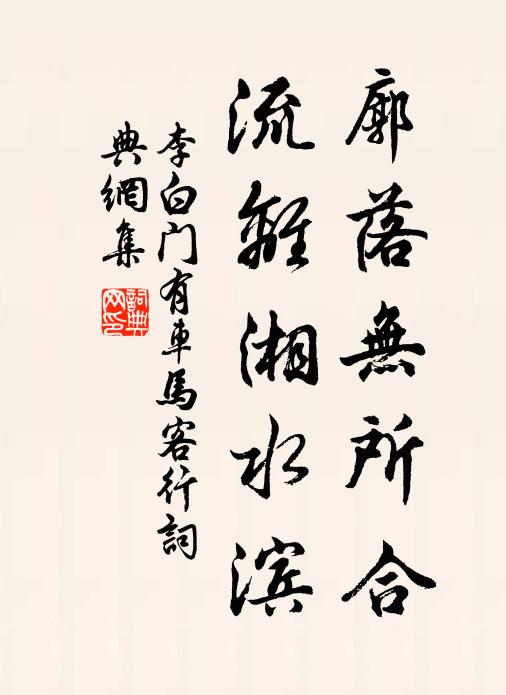 廓落無所合
流離湘水滨
李白門有車馬客行詞
典網集
詞典
网印